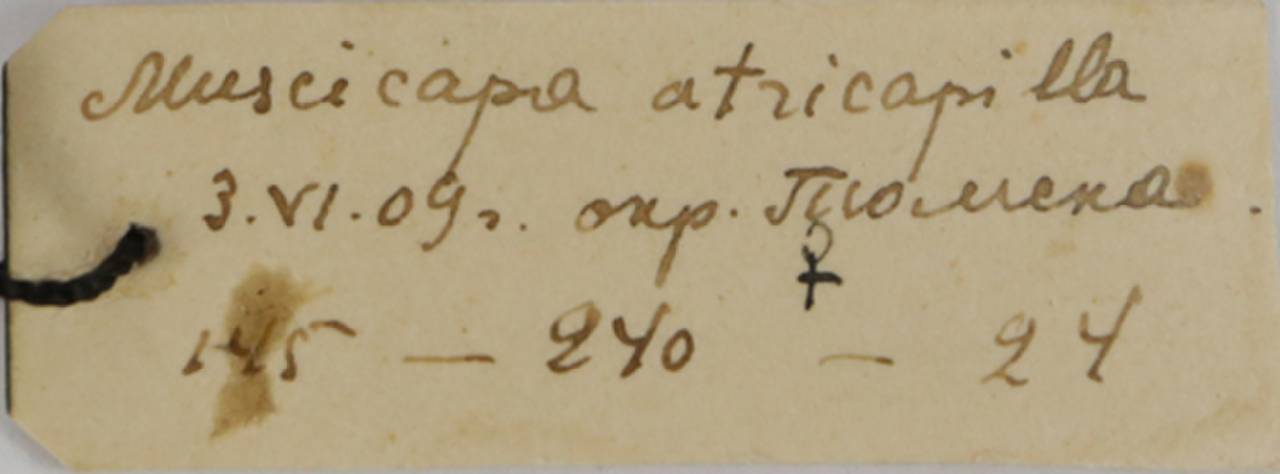 Muscicapa atricapilla
3.VI.09г. окр. Тюмена.
♀
145 — 240 — 24